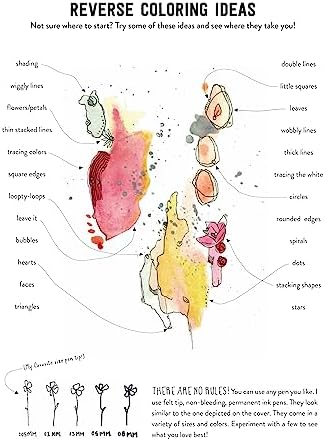 REVERSE COLORING IDEAS
Not sure where to start? Try some of these ideas and see where they take you!
shading
wiggly lines
flowers/petals
thin stacked lines
tracing colors
square edges
loopty-loops
leave it
bubbles
hearts
faces
triangles
double lines
little squares
leaves
wobbly lines
thick lines
tracing the white
circles
rounded edges
spirals
dots
stacking shapes
stars
(My favorite size pen tips)
.005 MM
.01 MM
.03 MM
.05 MM
.08 MM
THERE ARE NO RULES! You can use any pen you like. I
use felt tip, non-bleeding, permanent ink pens. They look
similar to the one depicted on the cover. They come in a
variety of sizes and colors. Experiment with a few to see
what you love best!